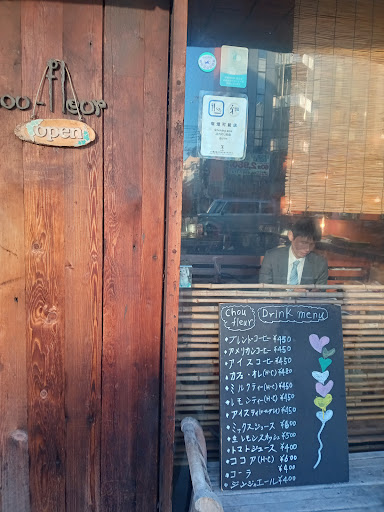 oo-fleor
open
Chou fleur
Drink menu
・ブレンドコーヒー ¥450
・アメリカンコーヒー ¥450
・アイスコーヒー ¥450
・カフェ・オレ(H・C) ¥480
・ミルクティー(H・C) ¥450
・レモンティー(H・C) ¥450
・アイスティー ¥450
・ミックスジュース ¥600
・生レモンスカッシュ ¥500
・トマトジュース ¥400
・ココア(H・C) ¥600
・コーラ ¥400
・ジンジャエール ¥400